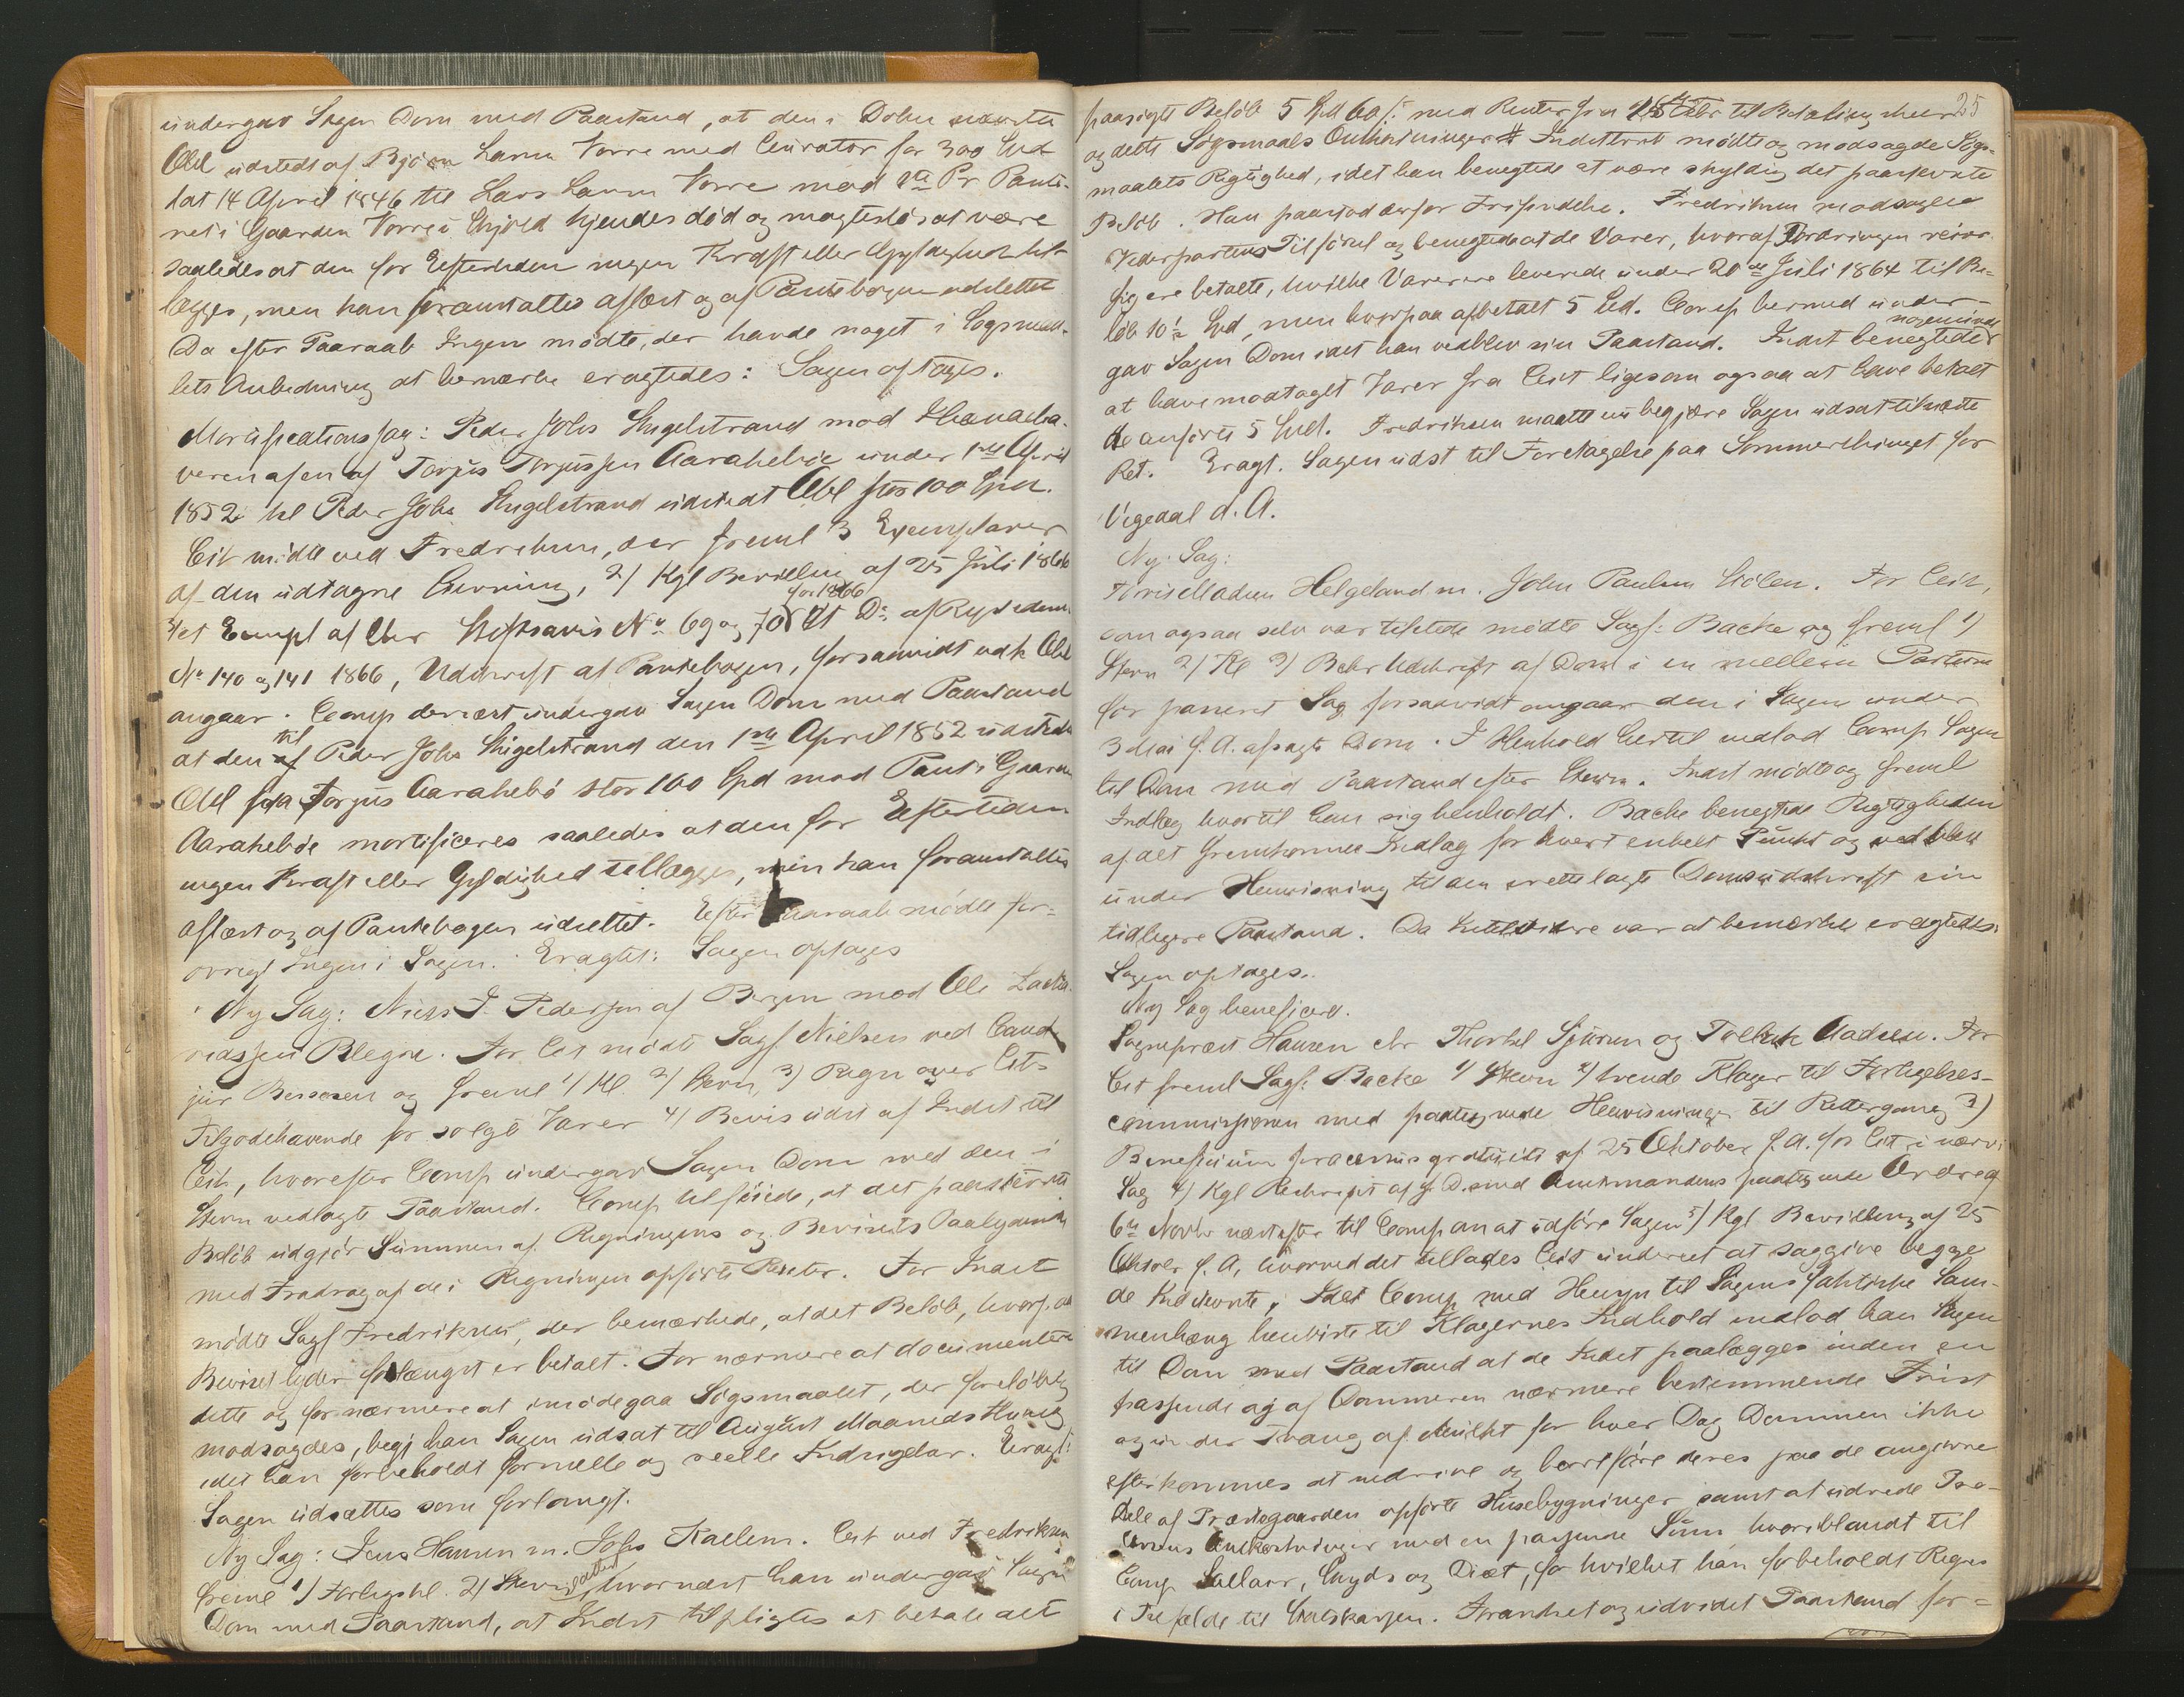 undergav Sagen Dom med Paastand, at den i Dolen nævnte
Obl udstedt af Bjørn Larsen Vorre med Curator for 300 Spd
dat 14 April 1846 til Lars Larsen Vorre mod 1ste Pr Pante-
ret i Gaarden Vorre i Skjold kjendes død og magtesløs at være
saaledes at den for Eftertiden ingen Kraft eller Gyldighed til-
lægges, men kan foranstaltes aflæst og af Pantebogen udslettet
Da efter Paaraab Ingen mødte, der havde noget i Sogsmaa-
lets Anledning at bemærke eragtedes: Sagen optages.
Mortificationssag: Peder Johs Stugelstrand mod Ihændeha-
veren af en af Torjus Torjussen Aarahebøe under 1ste April
1852 til Peder Johs Stugelstrand udstedt Obl stor 100 Spd.
Cit mødte ved Fredriksen, der freml 3 Exemplarer
af den udtagne Stevning, 2/ Kgl Bevilling af 25 Juli 1866
3/ et Exempl af Chr Stiftsavis No 69 og 70 for 1866 Et Do af Rigstidende
No 140 og 141 1866, Udskrift af Pantebogen, forsaavidt vedk Obl
angaar. Comp dernæst undergav Sagen Dom med Paastand
at den til Peder Johs Stugelstrand den 1ste April 1852 udstedte
Obl fra Torjus Aarahebø stor 100 Spd mod Pant i Gaarden
Aarahebøe mortificeres saaledes at den for Eftertiden
ingen Kraft eller Gyldighed tillægges, men kan foranstaltes
aflæst og af Pantebogen udslettet. Efter Paaraab mødte for-
øvrigt Ingen i Sagen. Eragtet: Sagen optages
Ny Sag: Niels J. Pedersen af Bergen mod Ole Zacha-
riassen Blegne. For Cit mødte Sagf Nielsen ved Cand
jur Bernsen og freml 1/ Kl. 2/ Stevn, 3) Regn over Cits
Tilgodehavende for solgte Varer 4/ Bevis udst af Indst til
Cit, hvorefter Comp undergav Sagen Dom med den i
Stevn nedlagte Paastand. Comp tilføiede, at det paastevnte
Beløb udgjør Summen af Regningens og Bevisets Paalydende
med Fradrag af de i Regningen opførte Renter. For Indst
mødte Sagf Fredriksen, der bemærkede, at det Beløb, hvorpaa
Beviset lyder forlængst er betalt. For nærmere at documentere
dette og for nærmere at imødegaa Søgsmaalet, der foreløbig
modsagdes, begj han Sagen udsat til August Maaneds Thing
idet han forbeholdt formelle og reelle Indsigelser. Eragt:
Sagen udsættes som forlangt.
Ny Sag: Jens Hansen m. Johs Kallem. Cit ved Fredriksen
freml 1/ Forligskl. 2/ Stevn, hvornæst han undergav Sagen
Dom med Paastand, at Indst tilpligtes at betale det
25
paasigte Beløb 5 Spd 60 s: med Renter fra til Betaling skeer
og dette Søgsmaals Omkostninger. Indstevnte mødte og modsagde Søgs-
maalets Rigtighed, idet han benegtede at være skyldig det paastevnte
Beløb. Han paastod derfor Frifindelse. Fredriksen modsagde
Vederpartens Tilførsel og benegtede at de Varer, hvoraf Fordringen reiser
sig ere betalte, hvilke Varer ere leverede under 20de Juli 1864 til Be-
løb 10½ Spd, men hvorpaa afbetalt 5 Spd. Comp hermed under-
gav Sagen Dom idet han vedblev sin Paastand. Indst benegtede nogensinde
at have modtaget Varer fra Cit ligesom ogsaa at have betalt
de anførte 5 Spd. Fredriksen maatte nu begjære Sagen udsat til næste
Ret. Eragt. Sagen udst til Foretagelse paa Sommerthinget for
Vigedal d. A.
Ny Sag:
Tørris Madsen Helgeland m. John Paulsen Stølen. For Cit,
som ogsaa selv var tilstede mødte Sagf: Backe og freml 1)
Stevn 2) Kl 3) Bekr Udskrift af Dom i en mellem Parterne
før passeret Sag forsaavidt angaar den i Sagen under
3 Mai f. A. afsagte Dom. I Henhold hertil indlod Comp Sagen
til Dom med Paastand efter Stevn. Indst mødte og freml
Indlæg hvortil han sig henholdt. Backe benegtede Rigtigheden
af det fremkomne Indlæg for hvert enkelt Punkt og vedblev
under Henvisning til den irettelagte Domsudskrift sin
tidligere Paastand. Da Intet videre var at bemærke eragtedes:
Sagen optages.
Ny Sag beneficeret.
Sognepræst Hansen ctr Thorkel Sjursen og Tollak Aadsen. For
Cit freml Sagf: Backe 1/ Stevn 2/ tvende Klager til Forligelses-
commissionen med paategnede Henvisninger til Rettergang 3)
Beneficium processus gratuiti af 25 Oktober f. A. for Cit i nærv:
Sag 4) Kgl Reskript af s. D. med Amtmandens paategnede Ordre af
6te Novbr næstefter til Comp om at udføre Sagen 5) Kgl Bevilling af 25
Oktober f. A, hvorved det tillades Cit underret at saggive begge
de Indstevnte. Idet Comp med Hensyn til Sagens faktiske Sam-
menhæng henviste til Klagernes Indhold indlod han Sagen
til Dom med Paastand at de Indst paalægges inden en
passende og af Dommeren nærmere bestemmende Frist
og under Tvang af Mulkt for hver Dag Dommen ikke
efterkommes at nedrive og bortføre deres paa de angivne
Dele af Præstegaarden opførte Husebygninger samt at udrede Pro-
cessens Omkostninger med en passende Sum hvoriblandt til
Comp Sallair, Skyds og Diæt, for hvilket han forbeholdt Regres
i Tilfælde til Statskassen. Forandret og udvidet Paastand for-